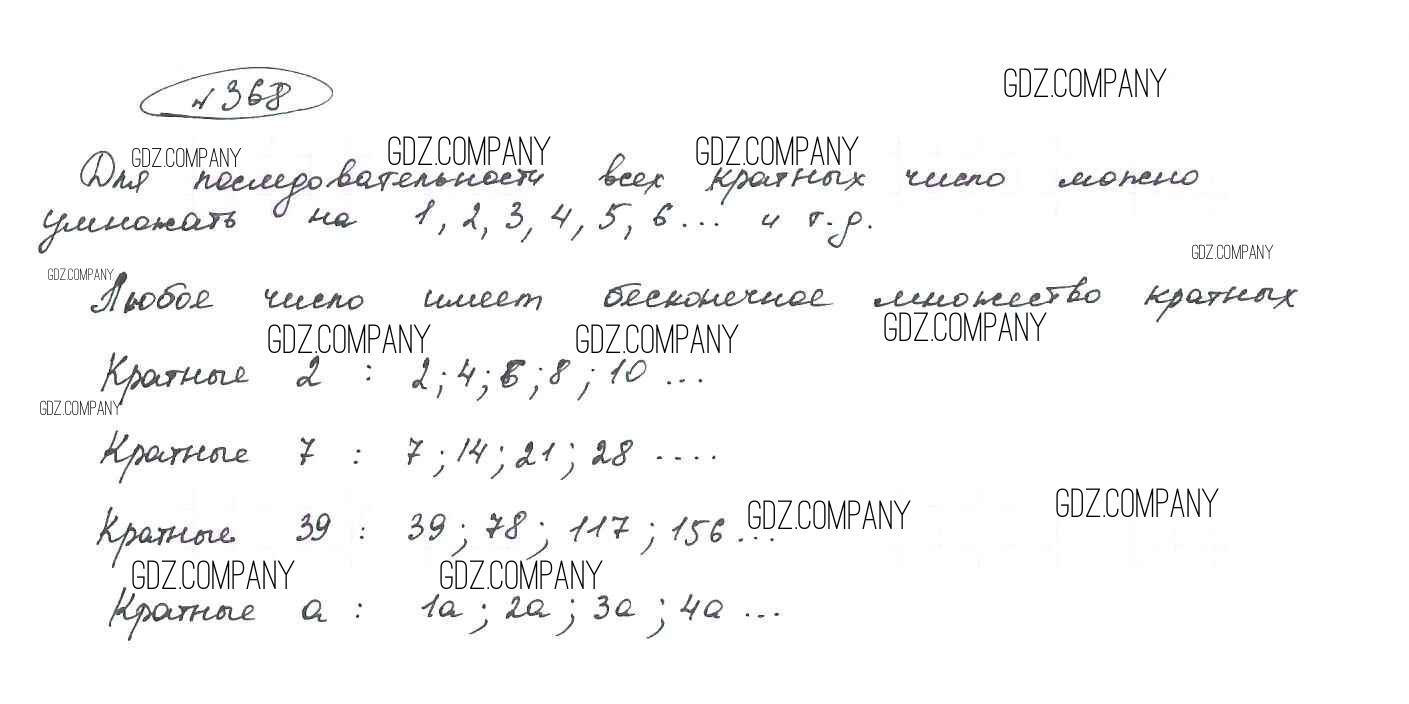 №368
GDZ.COMPANY
GDZ.COMPANY GDZ.COMPANY GDZ.COMPANY
Для последовательности всех кратных число можно
умножать на 1, 2, 3, 4, 5, 6... и т.д.
GDZ.COMPANY
GDZ.COMPANY
Любое число имеет бесконечное множество кратных
GDZ.COMPANY GDZ.COMPANY GDZ.COMPANY
Кратные 2 : 2; 4; 6; 8; 10 ...
GDZ.COMPANY
Кратные 7 : 7; 14; 21; 28 ....
GDZ.COMPANY GDZ.COMPANY
Кратные 39 : 39; 78; 117; 156 ...
GDZ.COMPANY GDZ.COMPANY
Кратные а : 1а; 2а; 3а; 4а ...